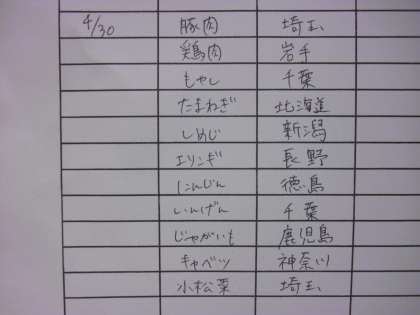 4/30 豚肉 埼玉
鶏肉 岩手
もやし 千葉
たまねぎ 北海道
しめじ 新潟
エリンギ 長野
にんじん 徳島
いんげん 千葉
じゃがいも 鹿児島
キャベツ 神奈川
小松菜 埼玉